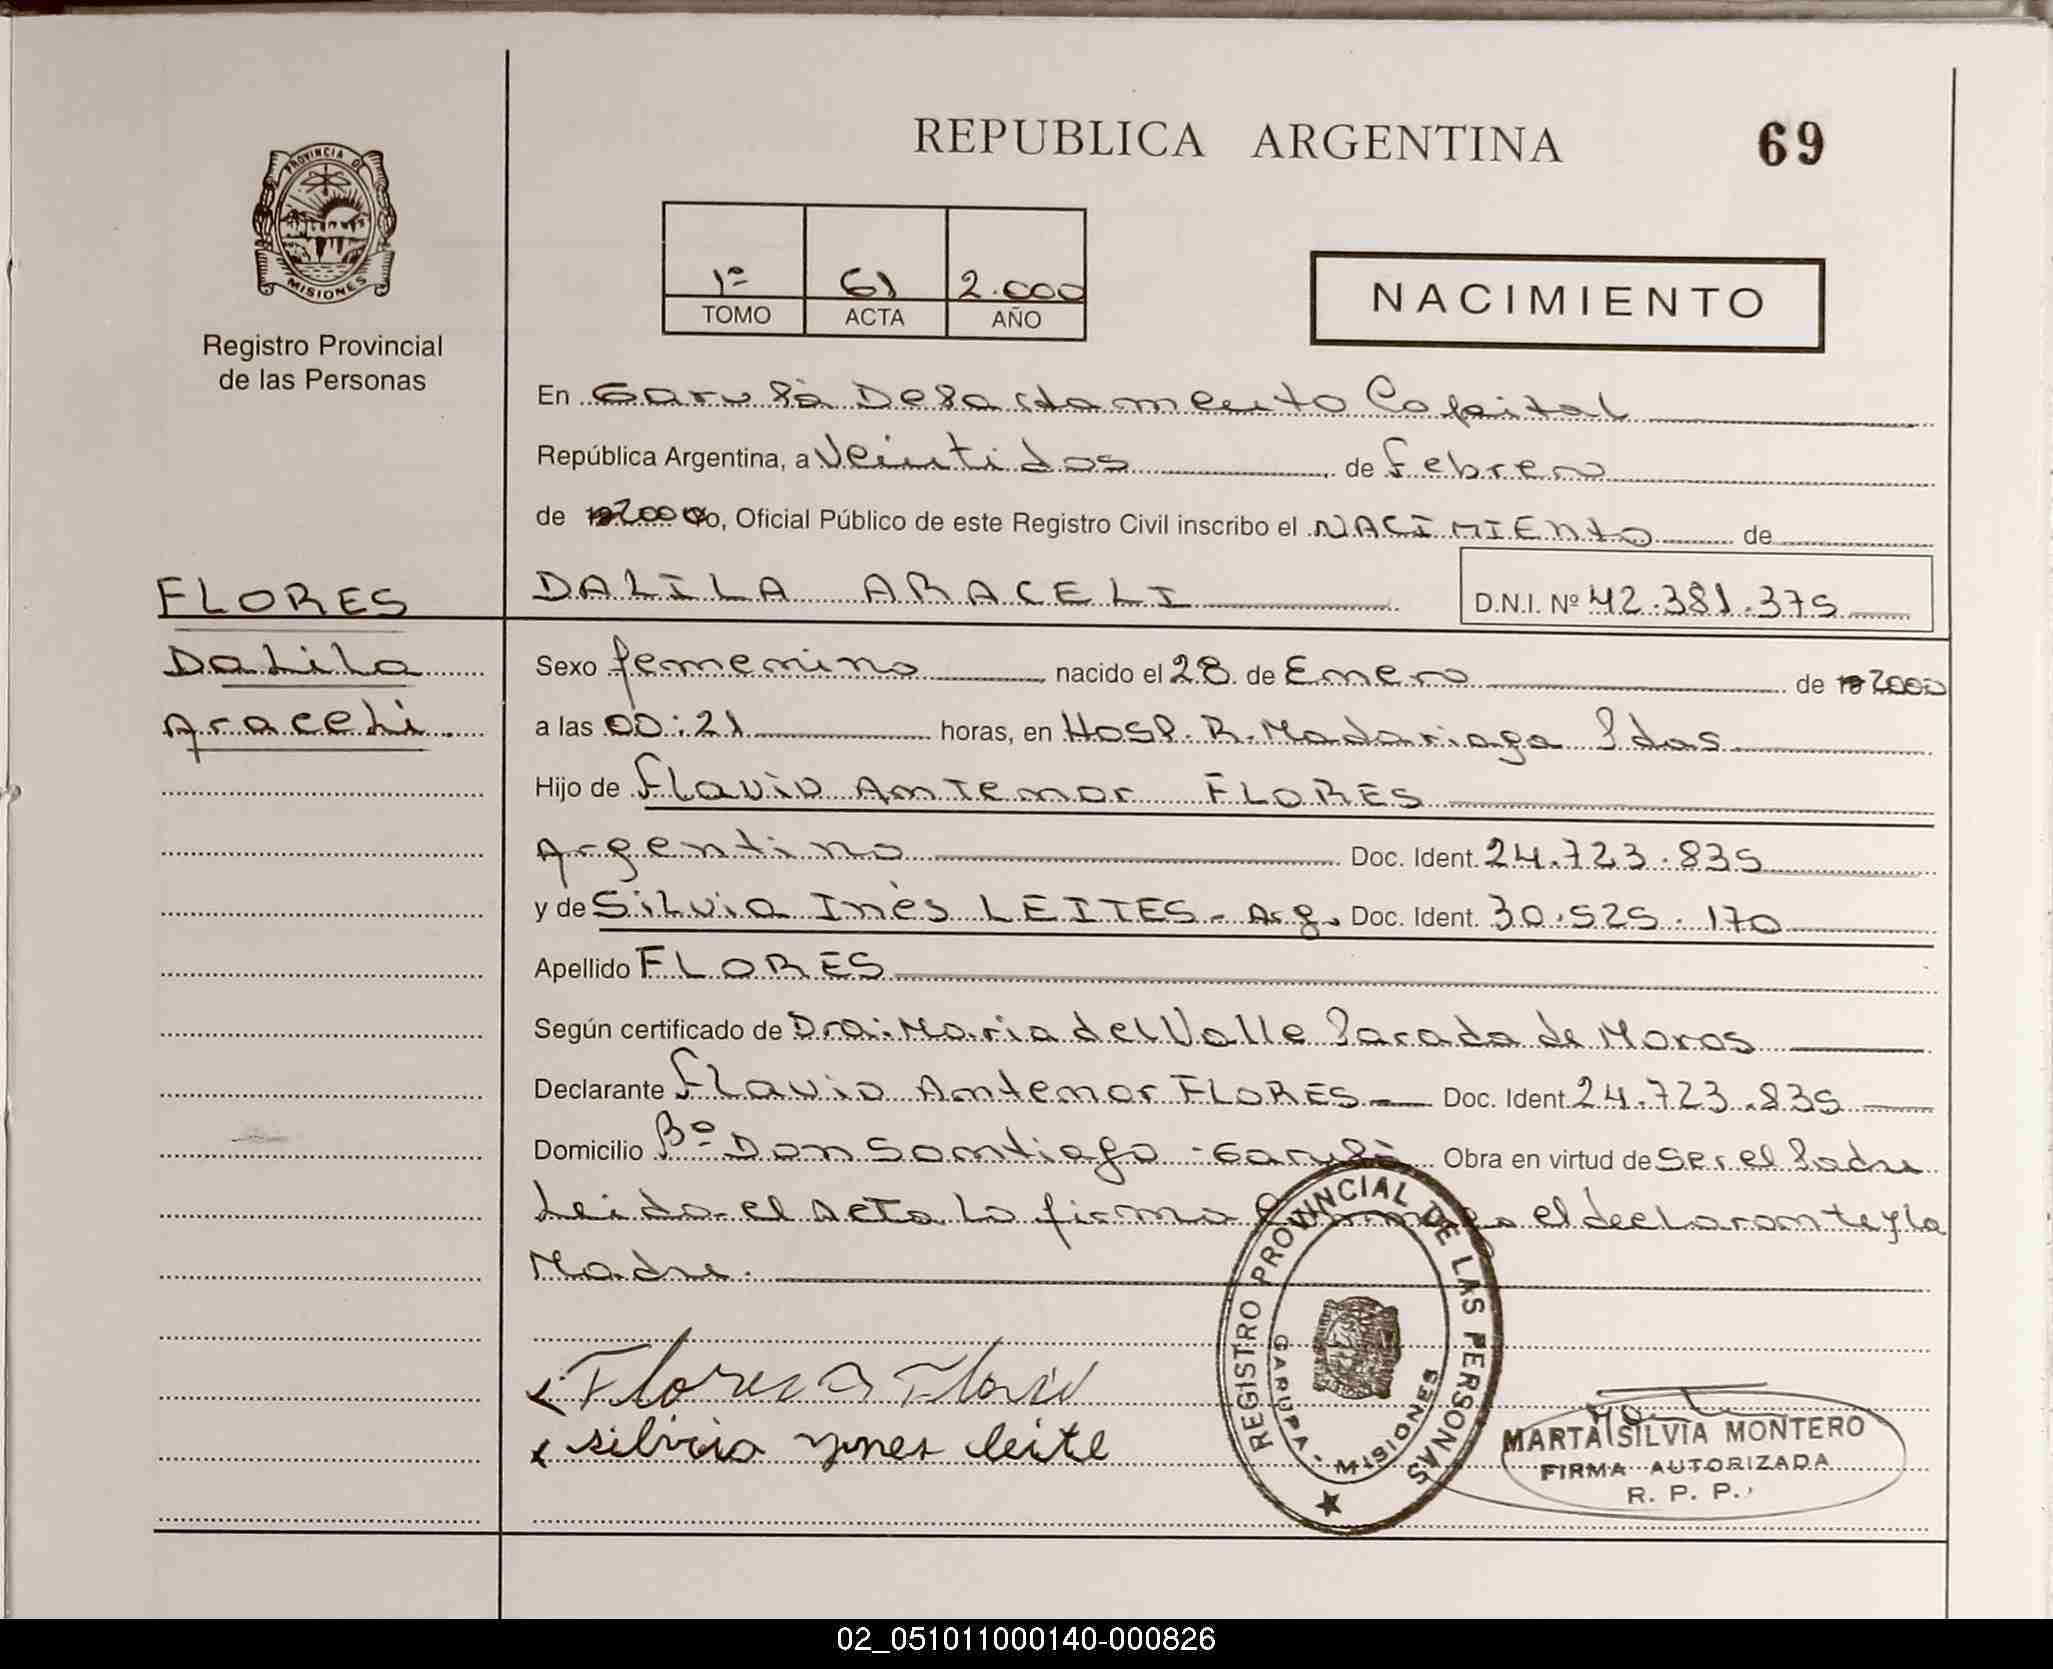 REPUBLICA ARGENTINA
69
PROVINCIA DE
MISIONES
Registro Provincial
de las Personas
1º 61 2.000
TOMO ACTA AÑO
NACIMIENTO
En Garupá Departamento Capital
República Argentina, a Veintidos de Febrero
de 2000 yo, Oficial Público de este Registro Civil inscribo el NACIMIENTO de
FLORES
DALILA ARACELI
D.N.I. Nº 42.381.375
Dalila
Sexo femenino nacido el 28 de Enero de 2000
Araceli
a las 00:21 horas, en Hosp. R. Madariaga Pdas
Hijo de Flavio Antenor FLORES
Argentino Doc. Ident. 24.723.835
y de Silvia Inès LEITES - Arg. Doc. Ident. 30.525.170
Apellido FLORES
Según certificado de Dra: Maria del Valle Parada de Moros
Declarante Flavio Antenor FLORES Doc. Ident. 24.723.835
Domicilio Bº Don Santiago - Garupá Obra en virtud de Ser el Padre
Leida el Acta la firma el declarante y la
Madre.
Flores Flavio
silvia ynes leite
REGISTRO PROVINCIAL DE LAS PERSONAS
GARUPA - MISIONES
MARTA SILVIA MONTERO
FIRMA AUTORIZADA
R. P. P.
02_051011000140-000826